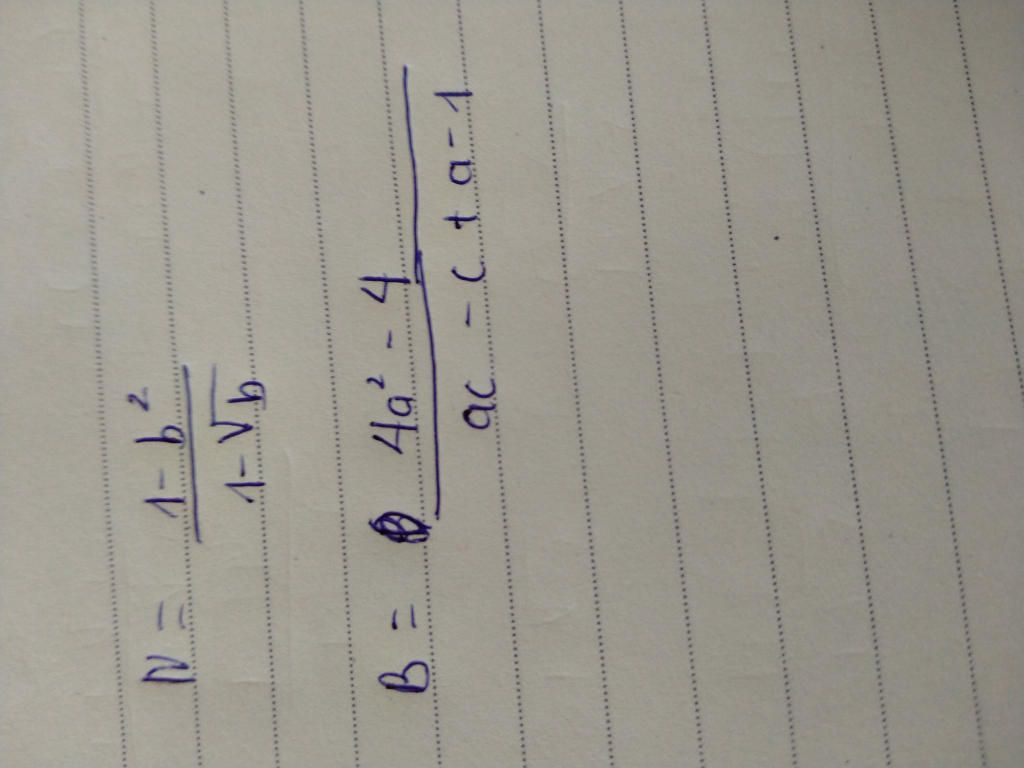 N = 1 - b² / 1 - √b
B = 4a² - 4 / ac - c + a - 1